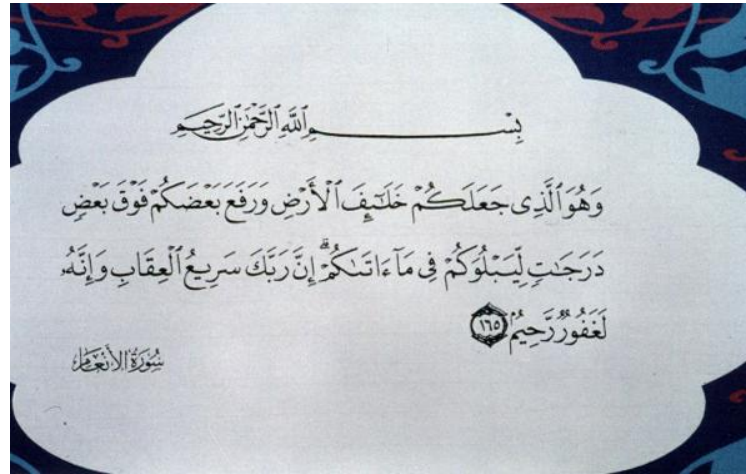 بِسْمِ ٱللَّهِ ٱلرَّحْمَٰنِ ٱلرَّحِيمِ
وَهُوَ ٱلَّذِى جَعَلَكُمْ خَلَٰٓئِفَ ٱلْأَرْضِ وَرَفَعَ بَعْضَكُمْ فَوْقَ بَعْضٍ
دَرَجَٰتٍ لِّيَبْلُوَكُمْ فِى مَآ ءَاتَىٰكُمْ ۗ إِنَّ رَبَّكَ سَرِيعُ ٱلْعِقَابِ وَإِنَّهُۥ
لَغَفُورٌ رَّحِيمٌ ١٦٥
سُورَةُ الأَنْعَامِ